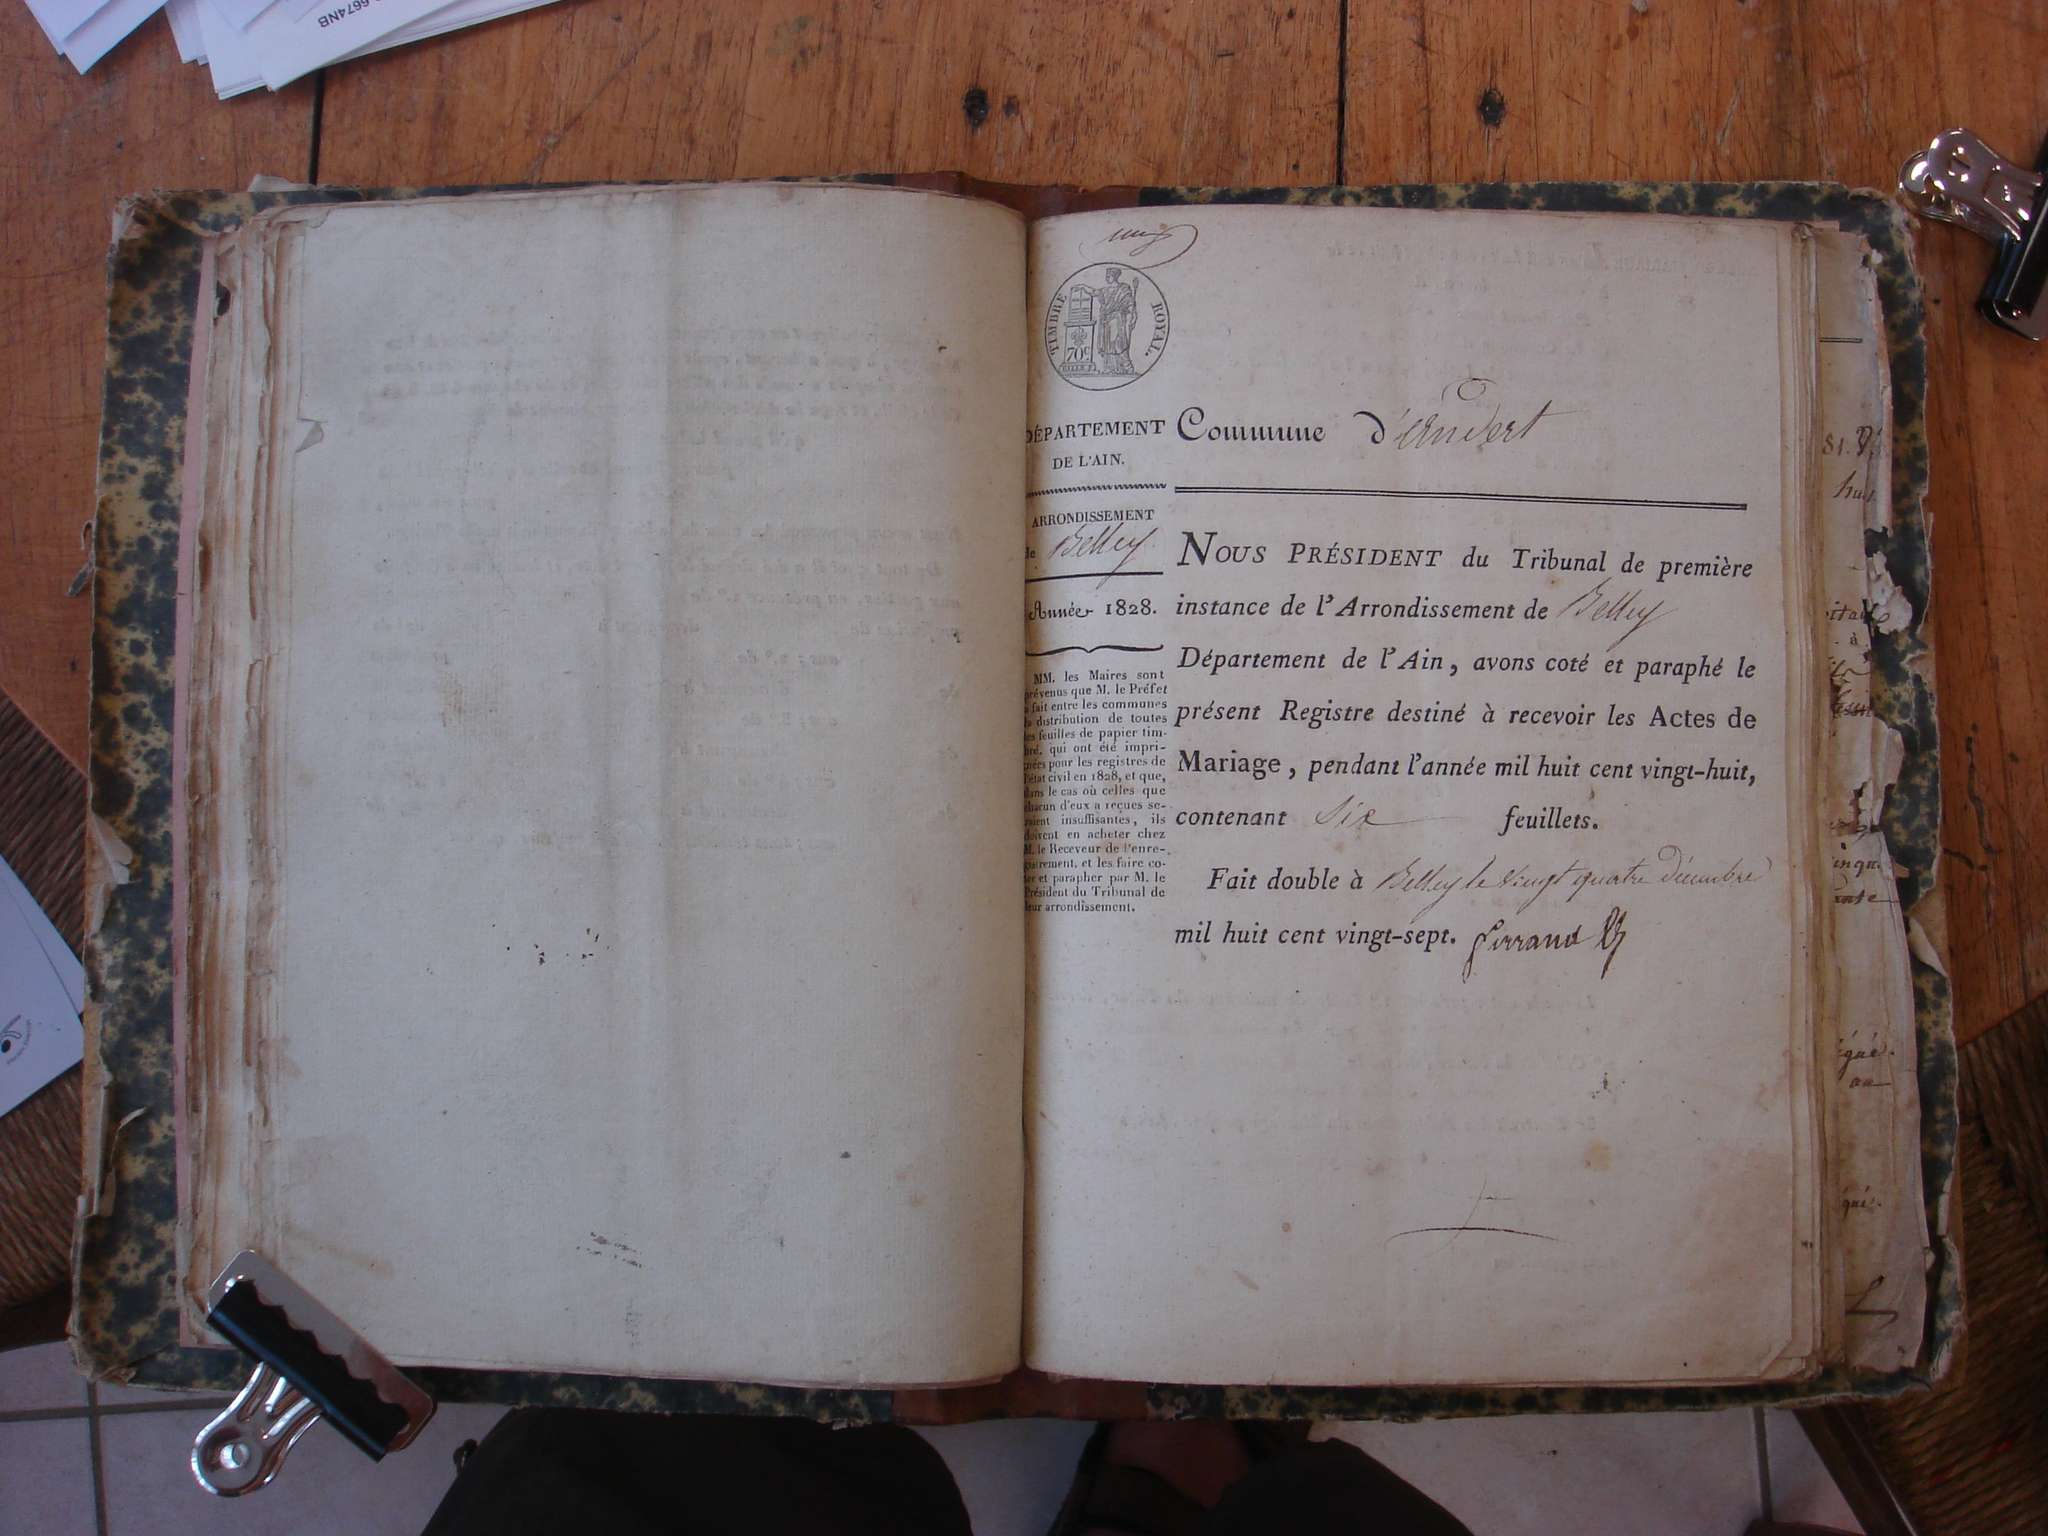 6674NB
TIMBRE ROYAL.
70c
DÉPARTEMENT
DE L'AIN.
ARRONDISSEMENT
de Belley
Année 1828.
MM. les Maires sont
prévenus que M. le Préfet
a fait entre les communes
la distribution de toutes
les feuilles de papier tim-
bré, qui ont été impri-
mées pour les registres de
l'état civil en 1828, et que,
dans le cas où celles que
chacun d'eux a reçues se-
raient insuffisantes, ils
doivent en acheter chez
M. le Receveur de l'enre-
gistrement, et les faire co-
ter et parapher par M. le
Président du Tribunal de
leur arrondissement.
Commune d'Andert
NOUS PRÉSIDENT du Tribunal de première
instance de l'Arrondissement de Belley
Département de l'Ain, avons coté et paraphé le
présent Registre destiné à recevoir les Actes de
Mariage, pendant l'année mil huit cent vingt-huit,
contenant Six feuillets.
Fait double à Belley le vingt quatre décembre
mil huit cent vingt-sept. Ferrand